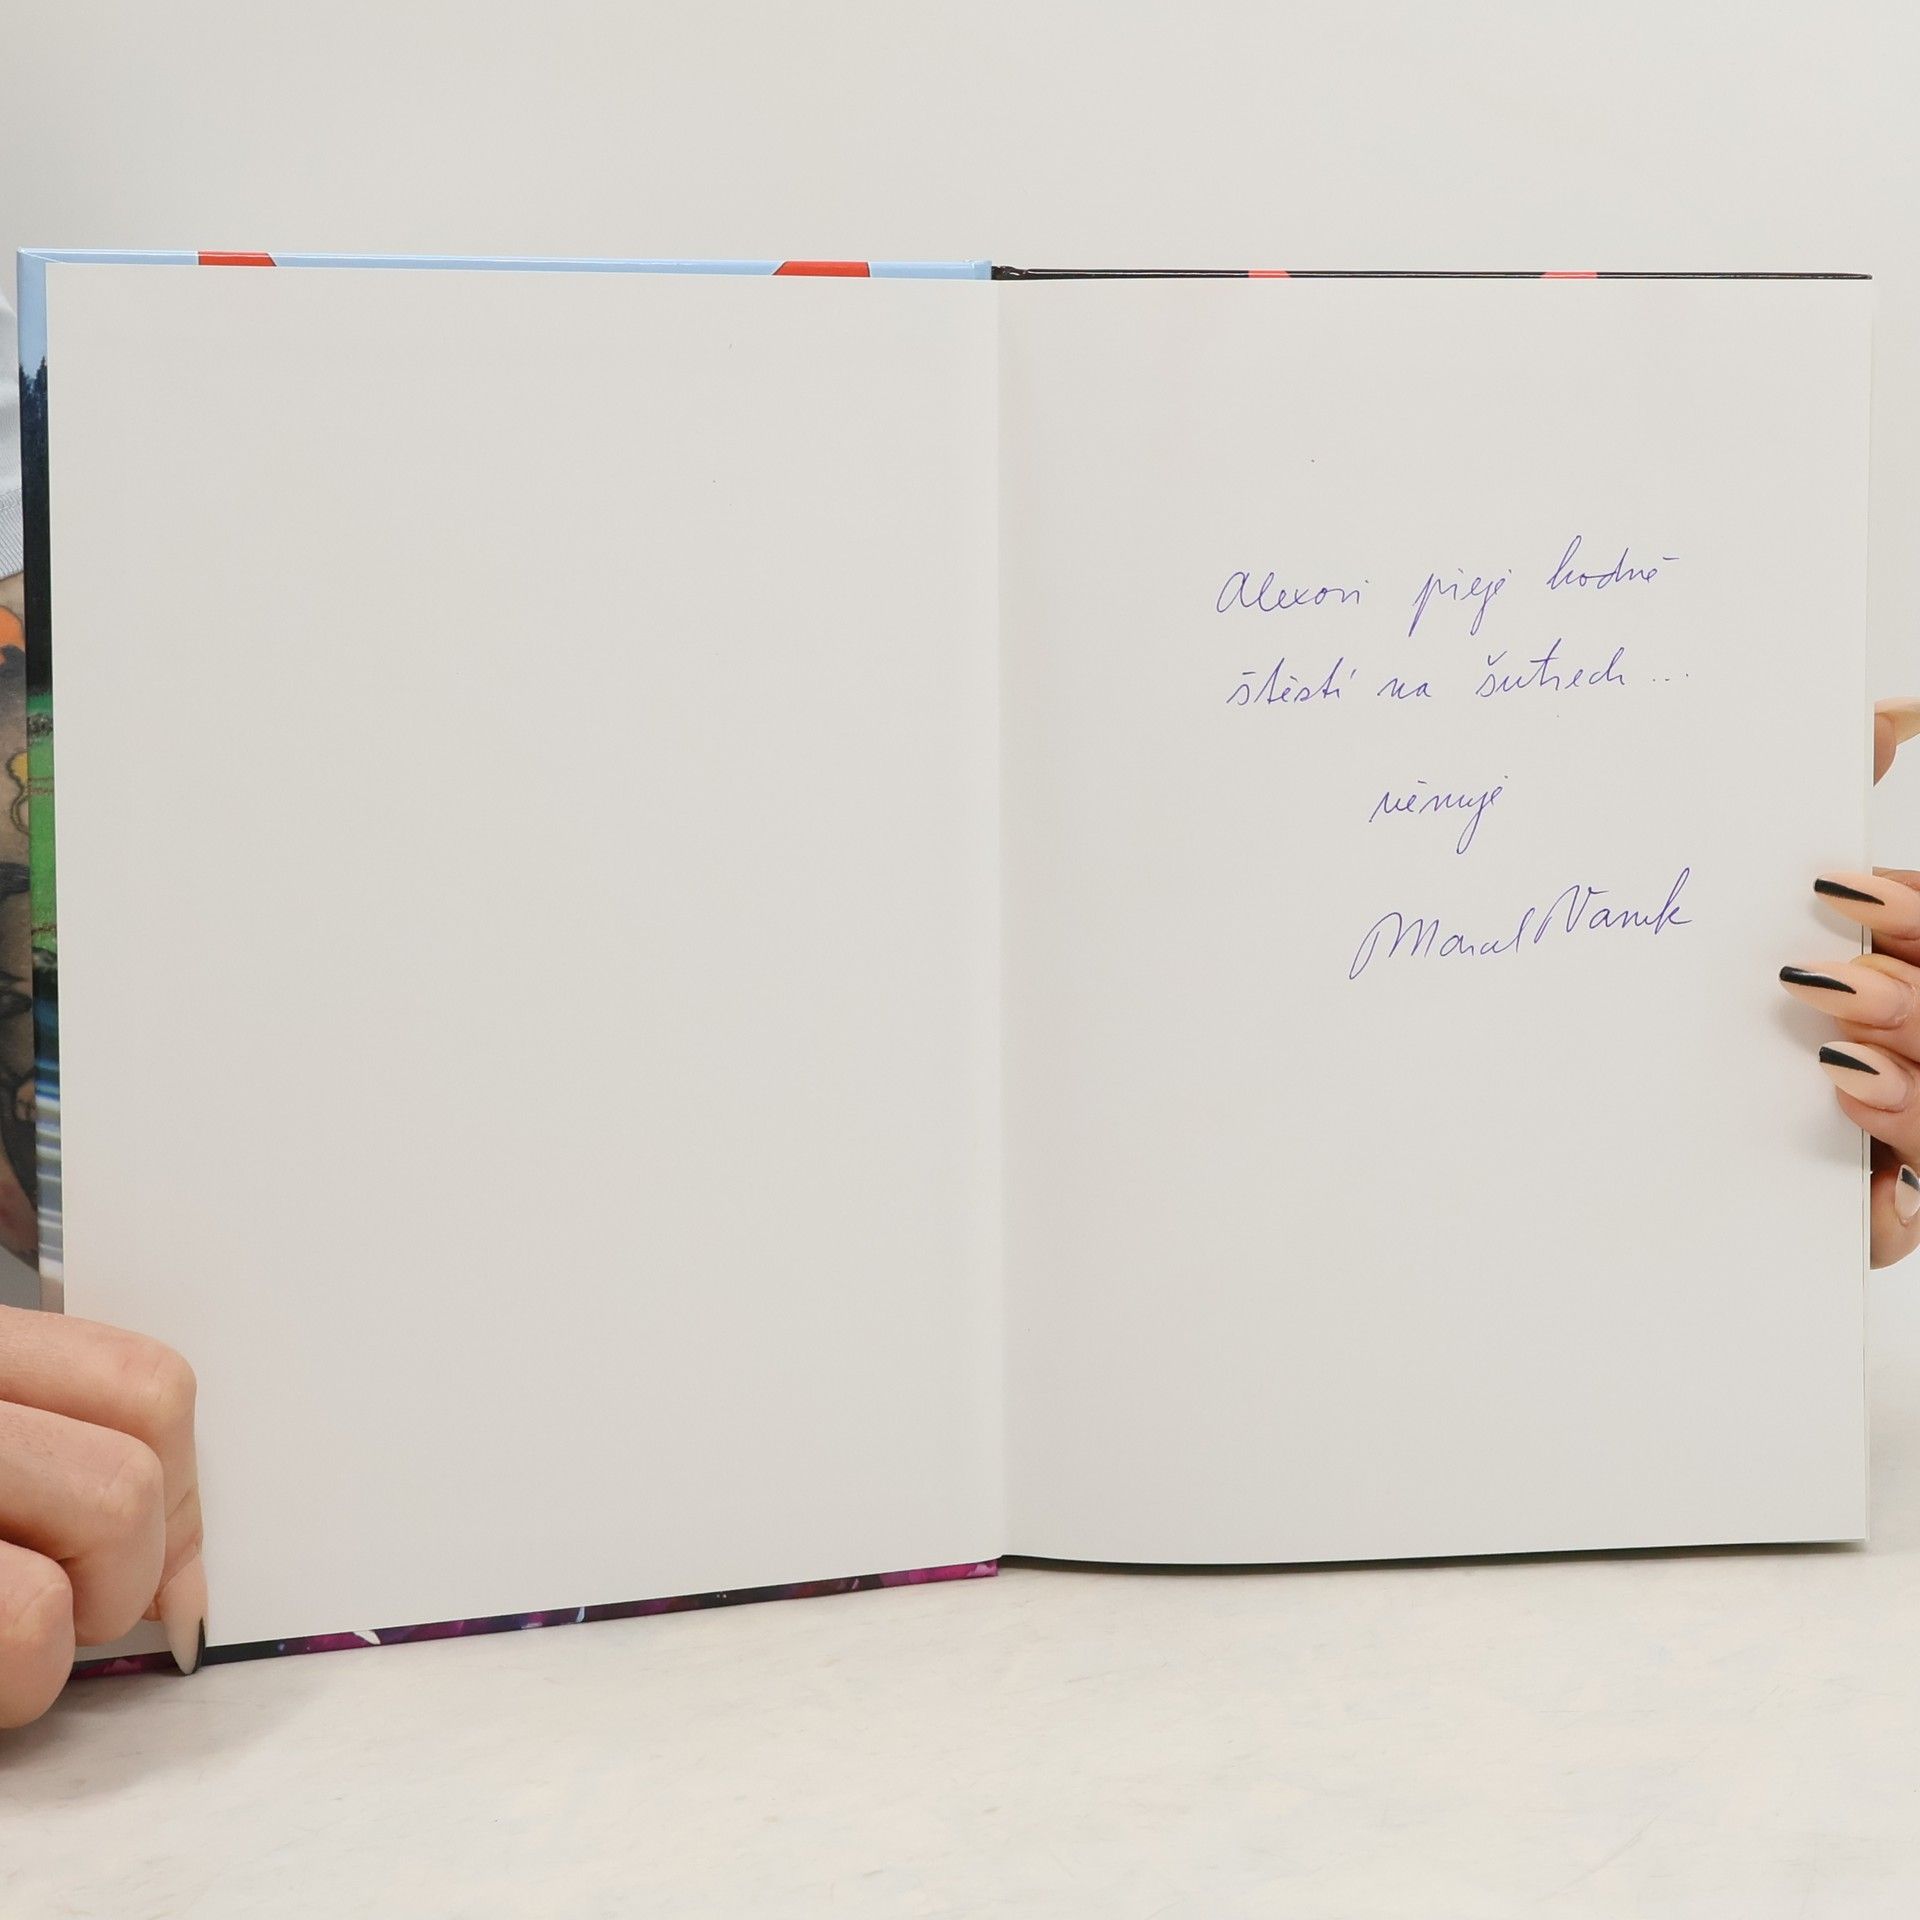 Alexovi přeje hodně
štěstí na šutrech ...
věnuje
Marcel Vanek